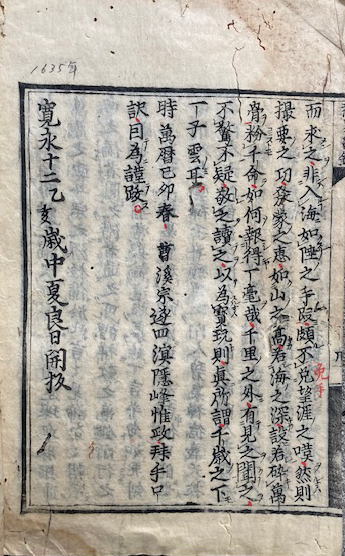 1635年
而求之非入海如陸之手段頗不免望涯之嘆然則
撮要之功發蒙之惠如山之高若海之深設若碎萬
骨粉千命如何報得一毫哉千里之外有見之聞之
不驚不疑敬之讀之以為寶玩則真所謂千歲之下
一子雲耳
時萬曆己卯春 曹溪宗遺四溟隱峰惟政拜手口
訣因為謹跋
寛永十二乙亥歲中夏良日開板